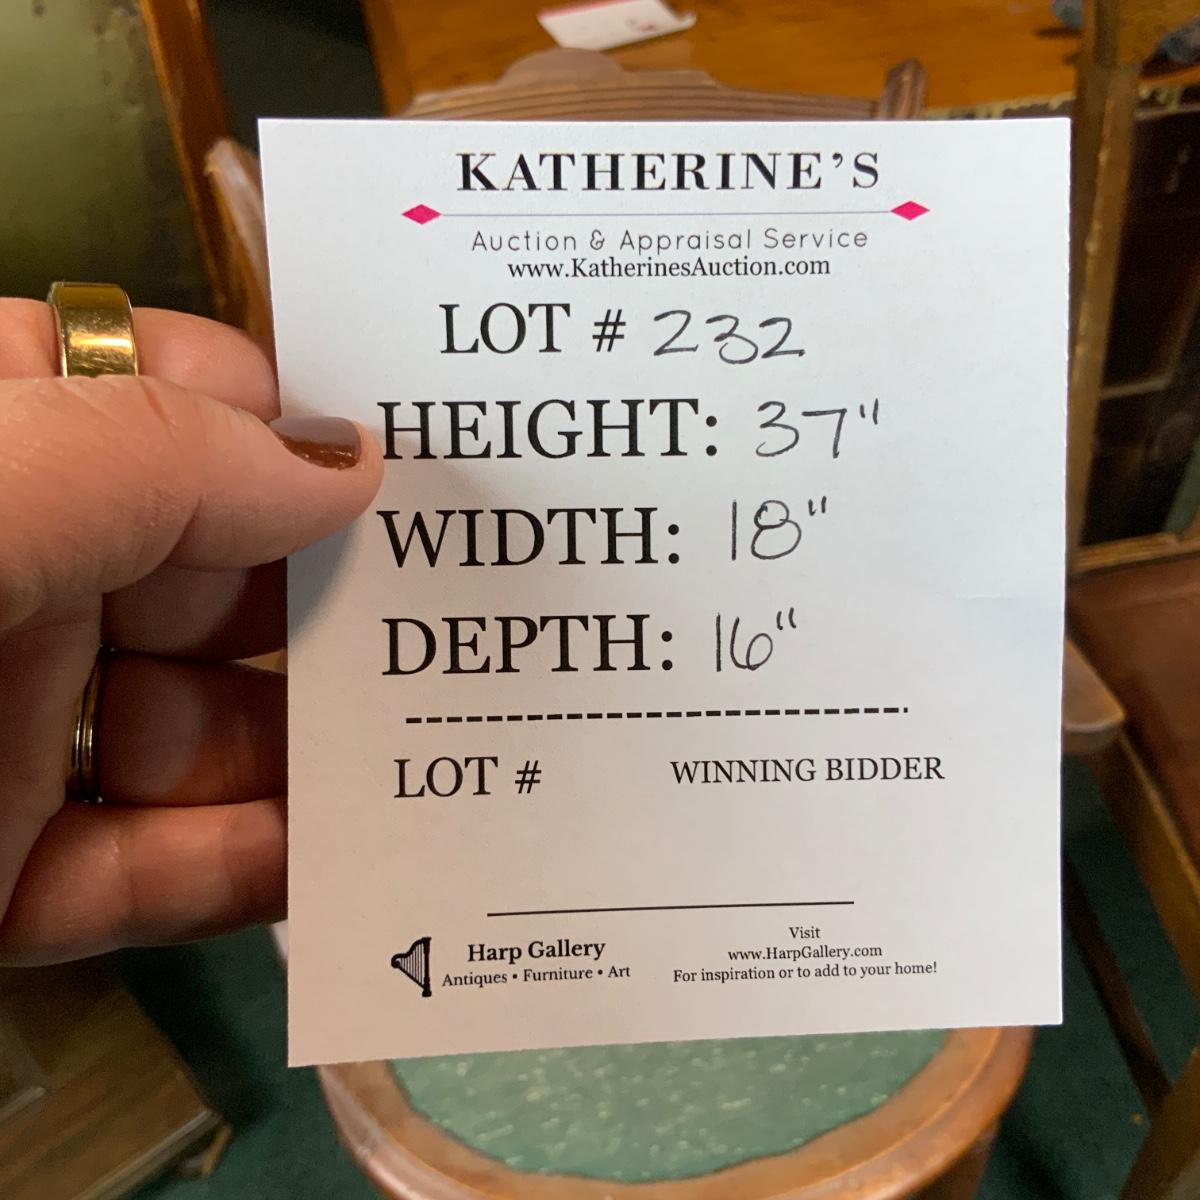 KATHERINE'S
Auction & Appraisal Service
www.KatherinesAuction.com
LOT # 232
HEIGHT: 37"
WIDTH: 18"
DEPTH: 16"
LOT # WINNING BIDDER
Harp Gallery
Antiques • Furniture • Art
Visit
www.HarpGallery.com
For inspiration or to add to your home!